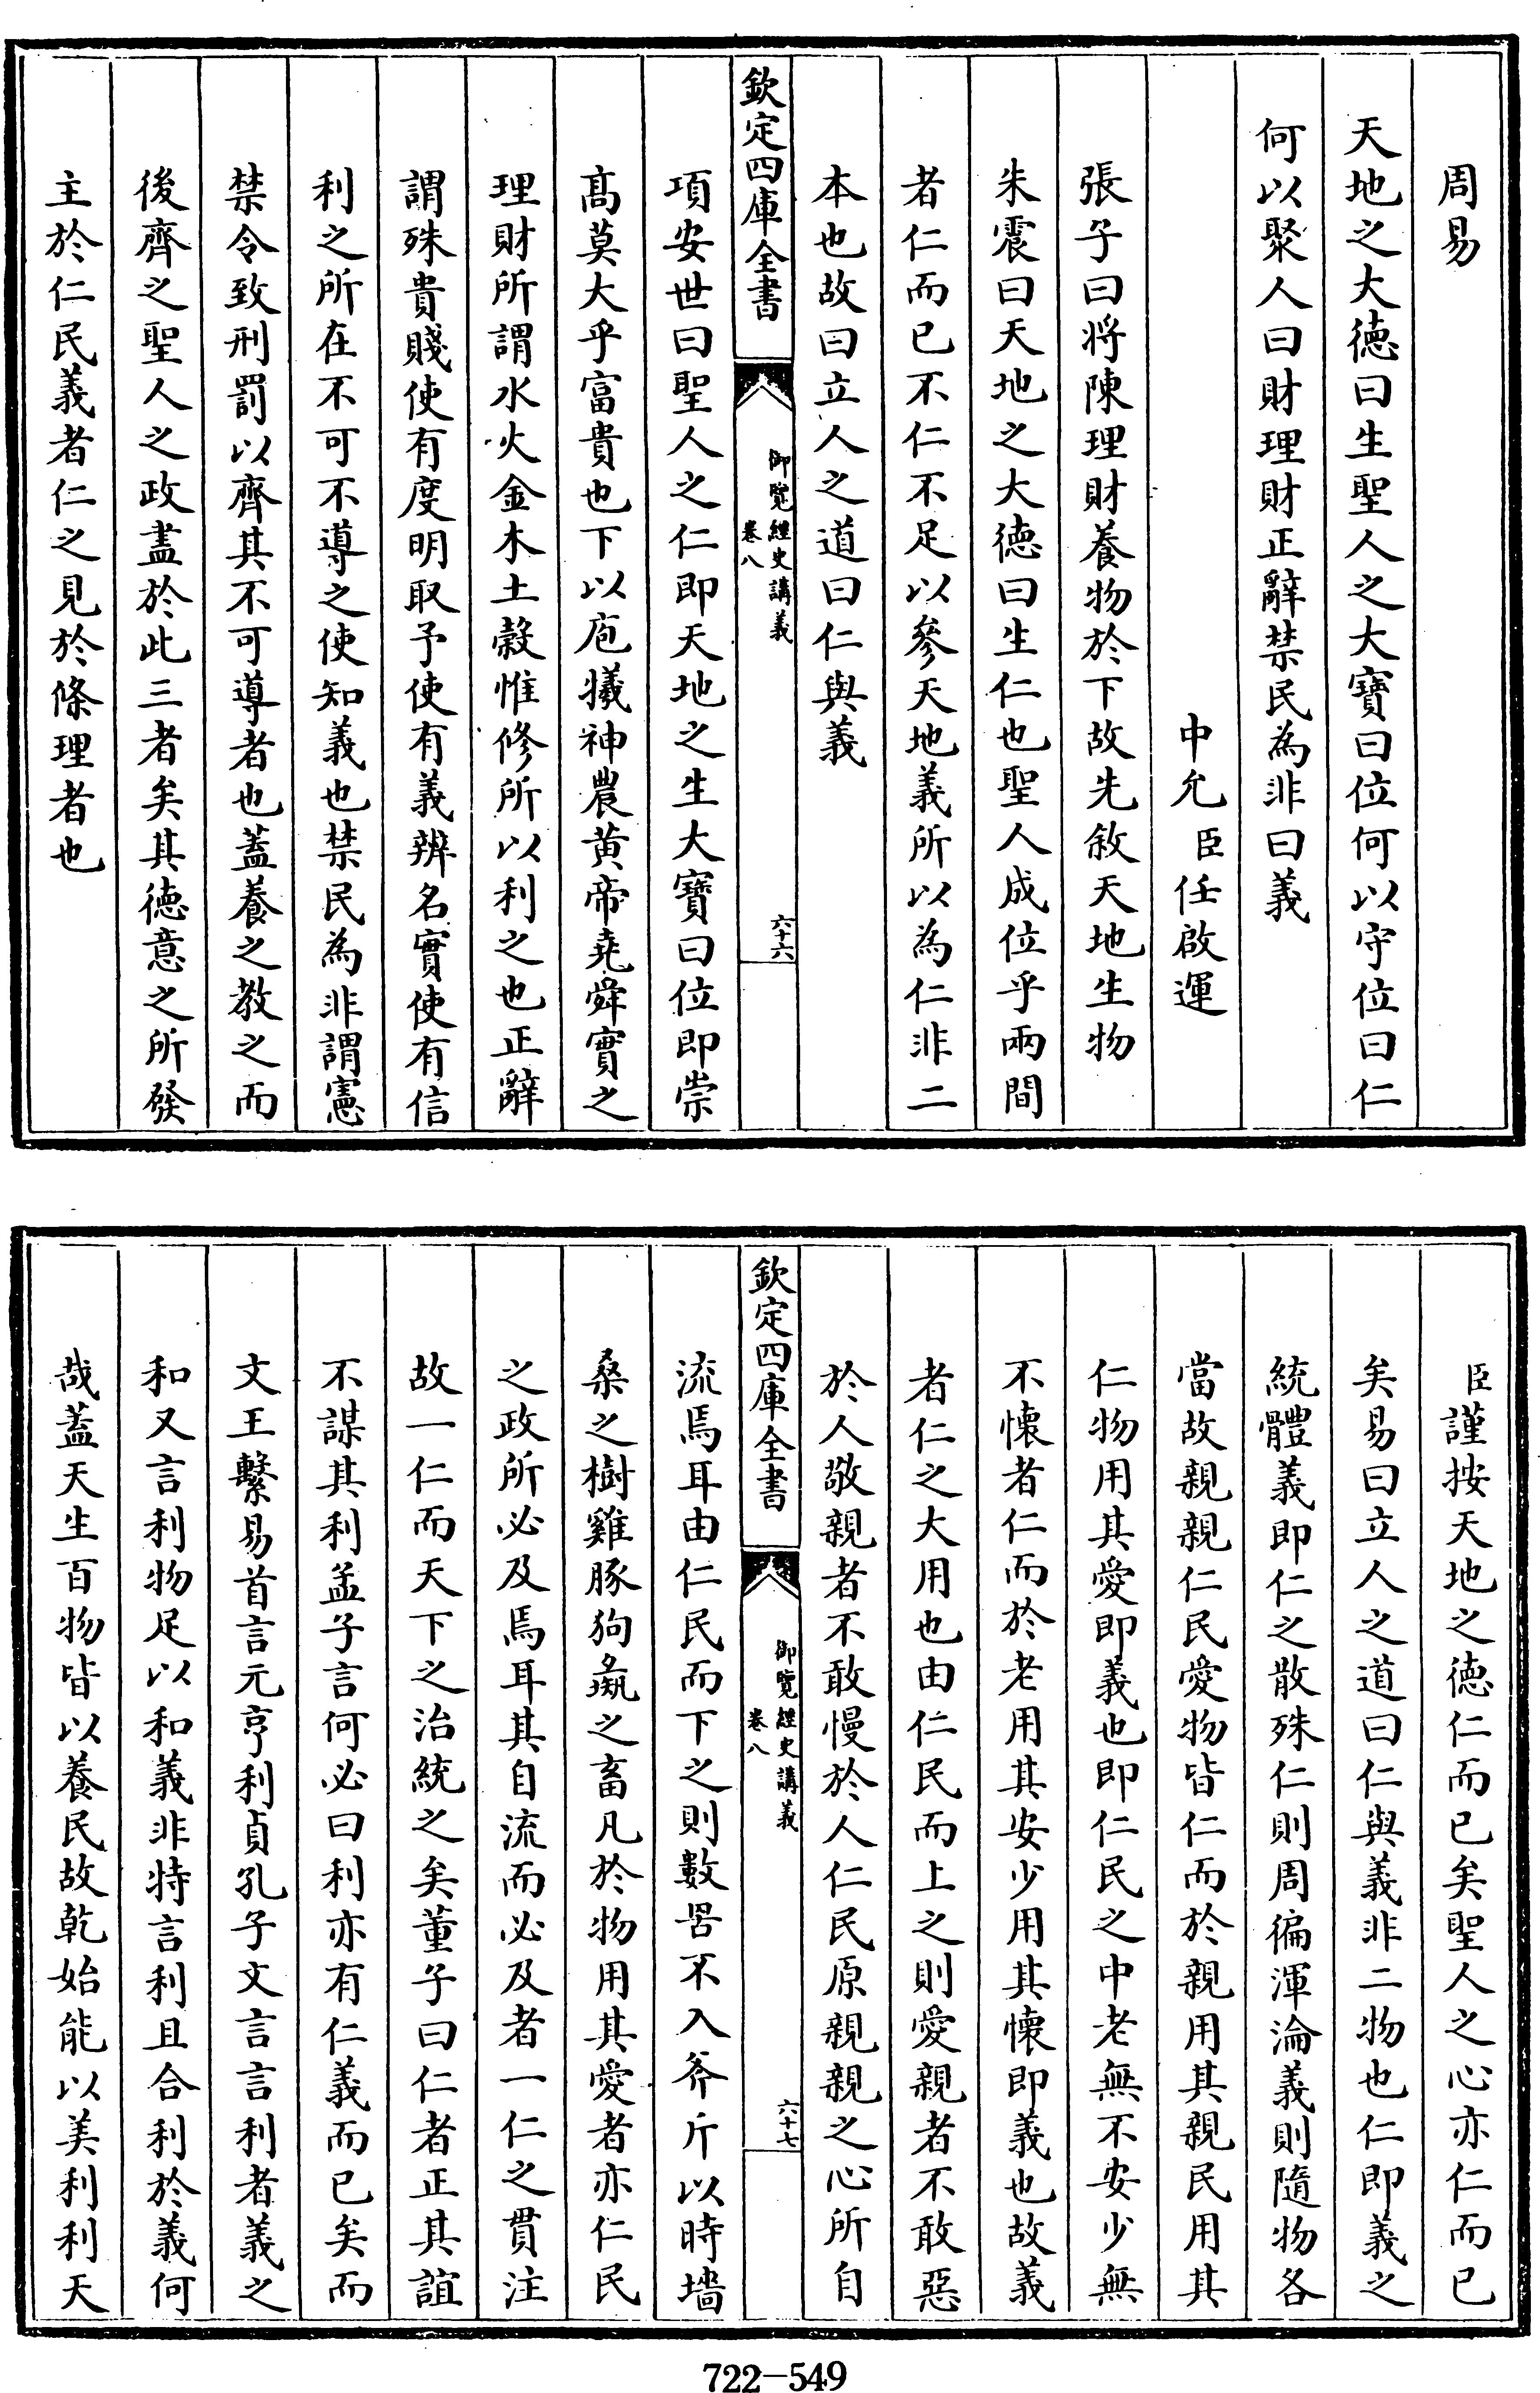 周易
天地之大徳曰生聖人之大寶曰位何以守位曰仁
何以聚人曰財理財正辭禁民為非曰義
中允臣任啟運
張子曰將陳理財養物於下故先敘天地生物
朱震曰天地之大徳曰生仁也聖人成位乎兩間
者仁而已不仁不足以參天地義所以為仁非二
本也故曰立人之道曰仁與義
欽定四庫全書
御覽經史講義
卷八
六十六
項安世曰聖人之仁即天地之生大寶曰位即崇
髙莫大乎富貴也下以庖犧神農黄帝堯舜實之
理財所謂水火金木土榖惟修所以利之也正辭
謂殊貴賤使有度明取予使有義辨名實使有信
利之所在不可不導之使知義也禁民為非謂憲
禁令致刑罰以齊其不可導者也蓋養之教之而
後齊之聖人之政盡於此三者矣其徳意之所發
主於仁民義者仁之見於條理者也
臣謹按天地之徳仁而已矣聖人之心亦仁而已
矣易曰立人之道曰仁與義非二物也仁即義之
統體義即仁之散殊仁則周徧渾淪義則隨物各
當故親親仁民愛物皆仁而於親用其親民用其
仁物用其愛即義也即仁民之中老無不安少無
不懷者仁而於老用其安少用其懷即義也故義
者仁之大用也由仁民而上之則愛親者不敢惡
於人敬親者不敢慢於人仁民原親親之心所自
欽定四庫全書
御覽經史講義
卷八
六十七
流焉耳由仁民而下之則數罟不入斧斤以時墻
桑之樹雞豚狗彘之畜凡於物用其愛者亦仁民
之政所必及焉耳其自流而必及者一仁之貫注
故一仁而天下之治統之矣董子曰仁者正其誼
不謀其利孟子言何必曰利亦有仁義而已矣而
文王繫易首言元亨利貞孔子文言言利者義之
和又言利物足以和義非特言利且合利於義何
哉蓋天生百物皆以養民故乾始能以美利利天
722-549